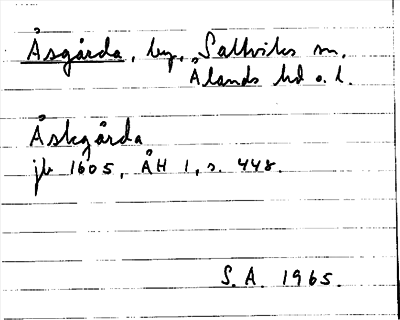 Åsgårda, by, Saltviks sn,
Ålands hd o. l.
Åskgårda
jb 1605, ÅH 1, s. 448.
S. A. 1965.